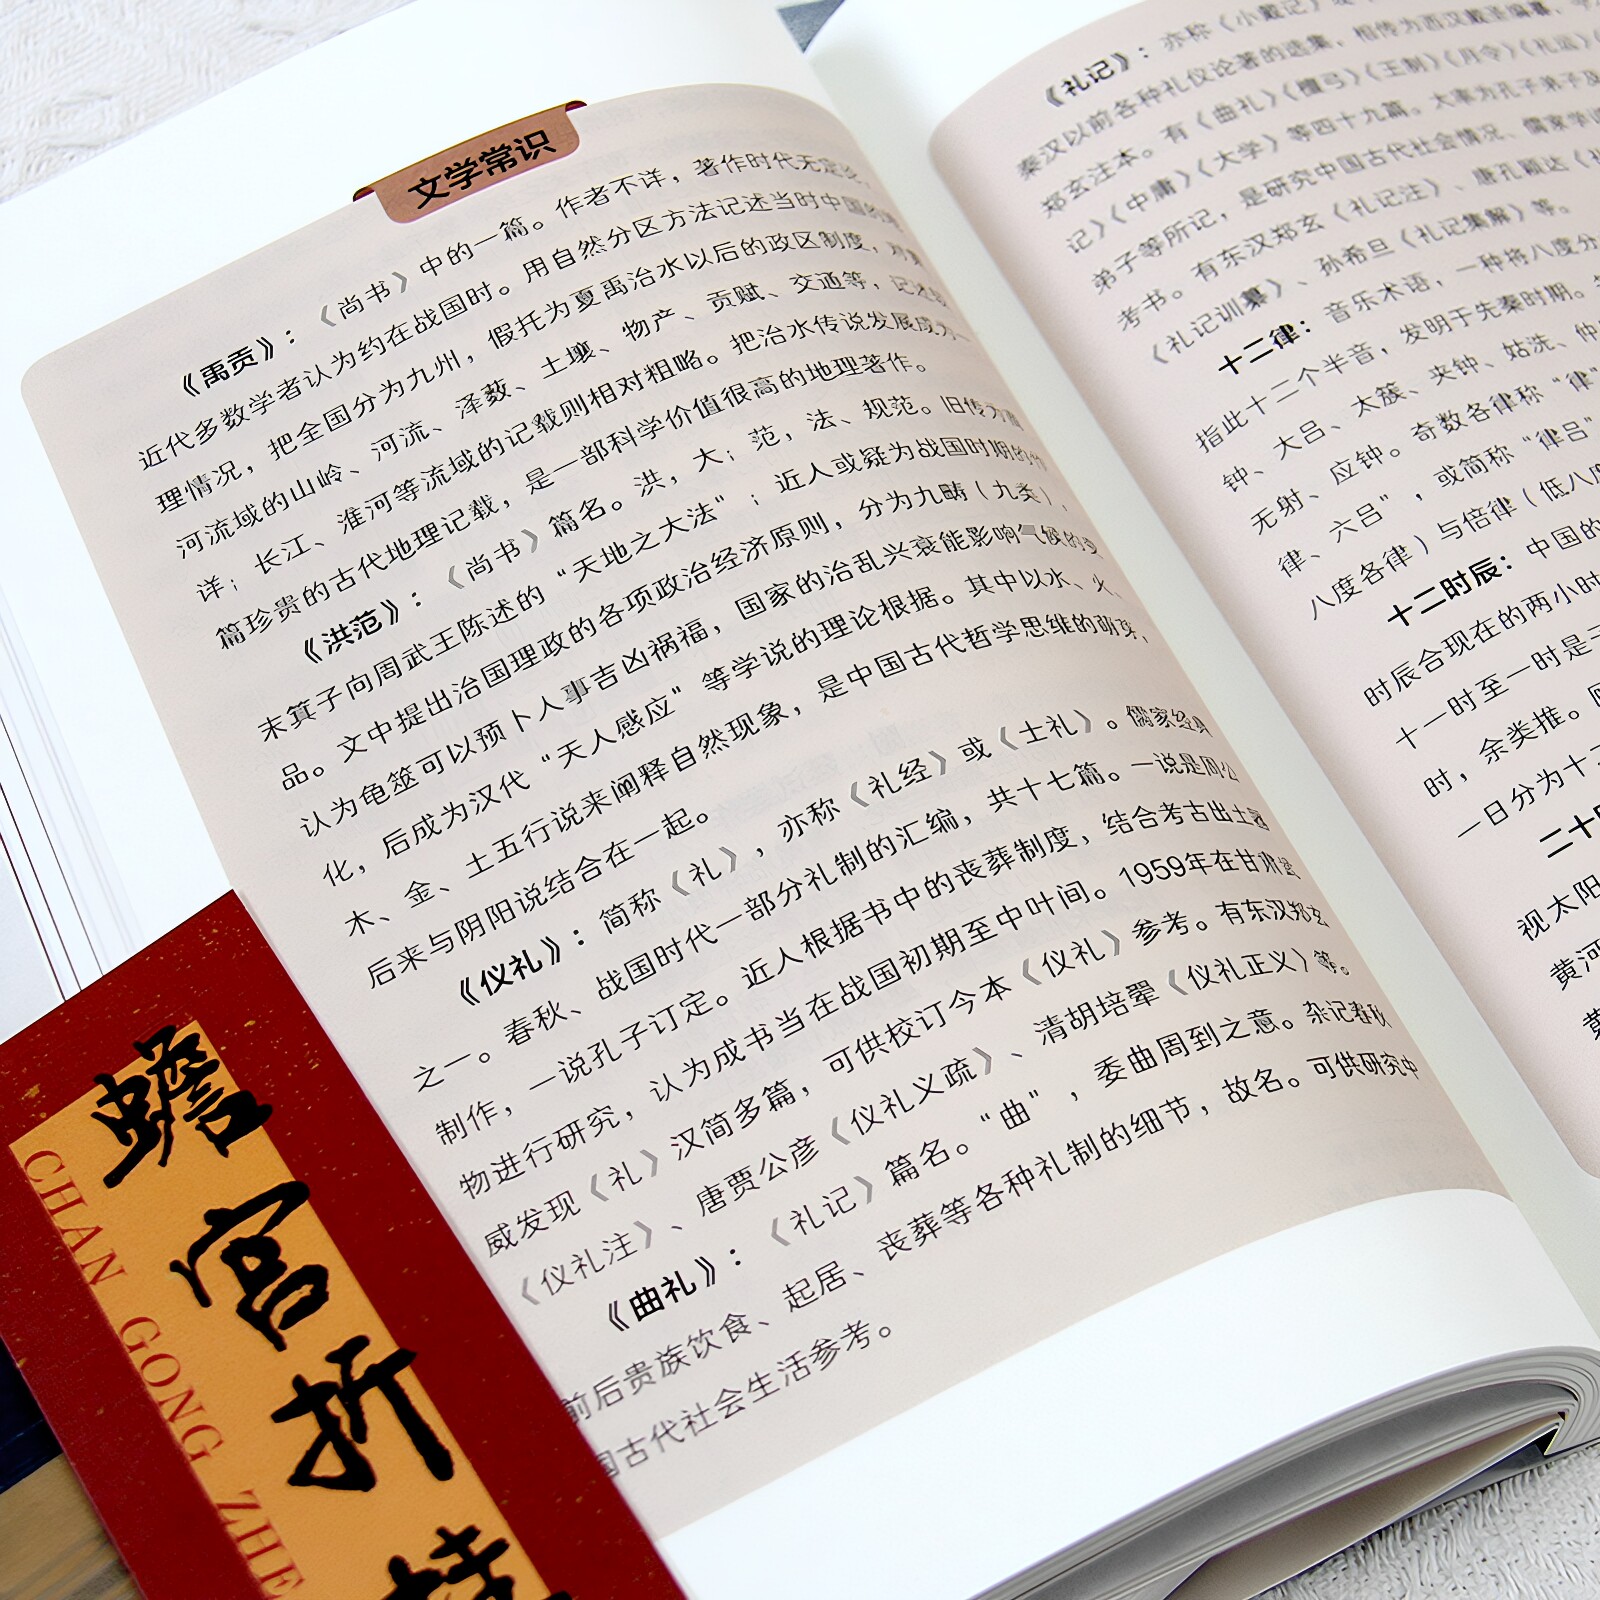 文学常识
《禹贡》：《尚书》中的一篇。作者不详，著作时代无定论，
近代多数学者认为约在战国时。用自然分区方法记述当时中国的地
理情况，把全国分为九州，假托为夏禹治水以后的政区制度，对黄
河流域的山岭、河流、泽薮、土壤、物产、贡赋、交通等，记述较
详；长江、淮河等流域的记载则相对粗略。把治水传说发展成为一
篇珍贵的古代地理记载，是一部科学价值很高的地理著作。
《洪范》：《尚书》篇名。洪，大；范，法、规范。旧传为商
末箕子向周武王陈述的“天地之大法”；近人或疑为战国时期的作
品。文中提出治国理政的各项政治经济原则，分为九畴（九类），
认为龟筮可以预卜人事吉凶祸福，国家的治乱兴衰能影响气候的变
化，后成为汉代“天人感应”等学说的理论根据。其中以水、火、
木、金、土五行说来阐释自然现象，是中国古代哲学思维的萌芽，
后来与阴阳说结合在一起。
《仪礼》：简称《礼》，亦称《礼经》或《士礼》。儒家经典
之一。春秋、战国时代一部分礼制的汇编，共十七篇。一说是周公
制作，一说孔子订定。近人根据书中的丧葬制度，结合考古出土器
物进行研究，认为成书当在战国初期至中叶间。1959年在甘肃武
威发现《礼》汉简多篇，可供校订今本《仪礼》参考。有东汉郑玄
《仪礼注》、唐贾公彦《仪礼义疏》、清胡培翚《仪礼正义》等。
《曲礼》：《礼记》篇名。“曲”，委曲周到之意。杂记春秋
前后贵族饮食、起居、丧葬等各种礼制的细节，故名。可供研究中
国古代社会生活参考。
《礼记》：亦称《小戴记》
秦汉以前各种礼仪论著的选集，相传为西汉戴圣编纂，
郑玄注本。有《曲礼》《檀弓》《王制》《月令》《礼运》
记》《中庸》《大学》等四十九篇。大率为孔子弟子及
弟子等所记，是研究中国古代社会情况、儒家学说
考书。有东汉郑玄《礼记注》、唐孔颖达《礼
《礼记训纂》、孙希旦《礼记集解》等。
十二律：音乐术语，一种将八度分
指此十二个半音，发明于先秦时期。
钟、大吕、太簇、夹钟、姑洗、仲
无射、应钟。奇数各律称“律”
律、六吕”，或简称“律吕”
八度各律）与倍律（低八度
十二时辰：中国的
时辰合现在的两小时
十一时至一时是子
时，余类推。
一日分为十
二十
视太阳
黄河
黄
蟾宫折桂
CHAN GONG ZHE